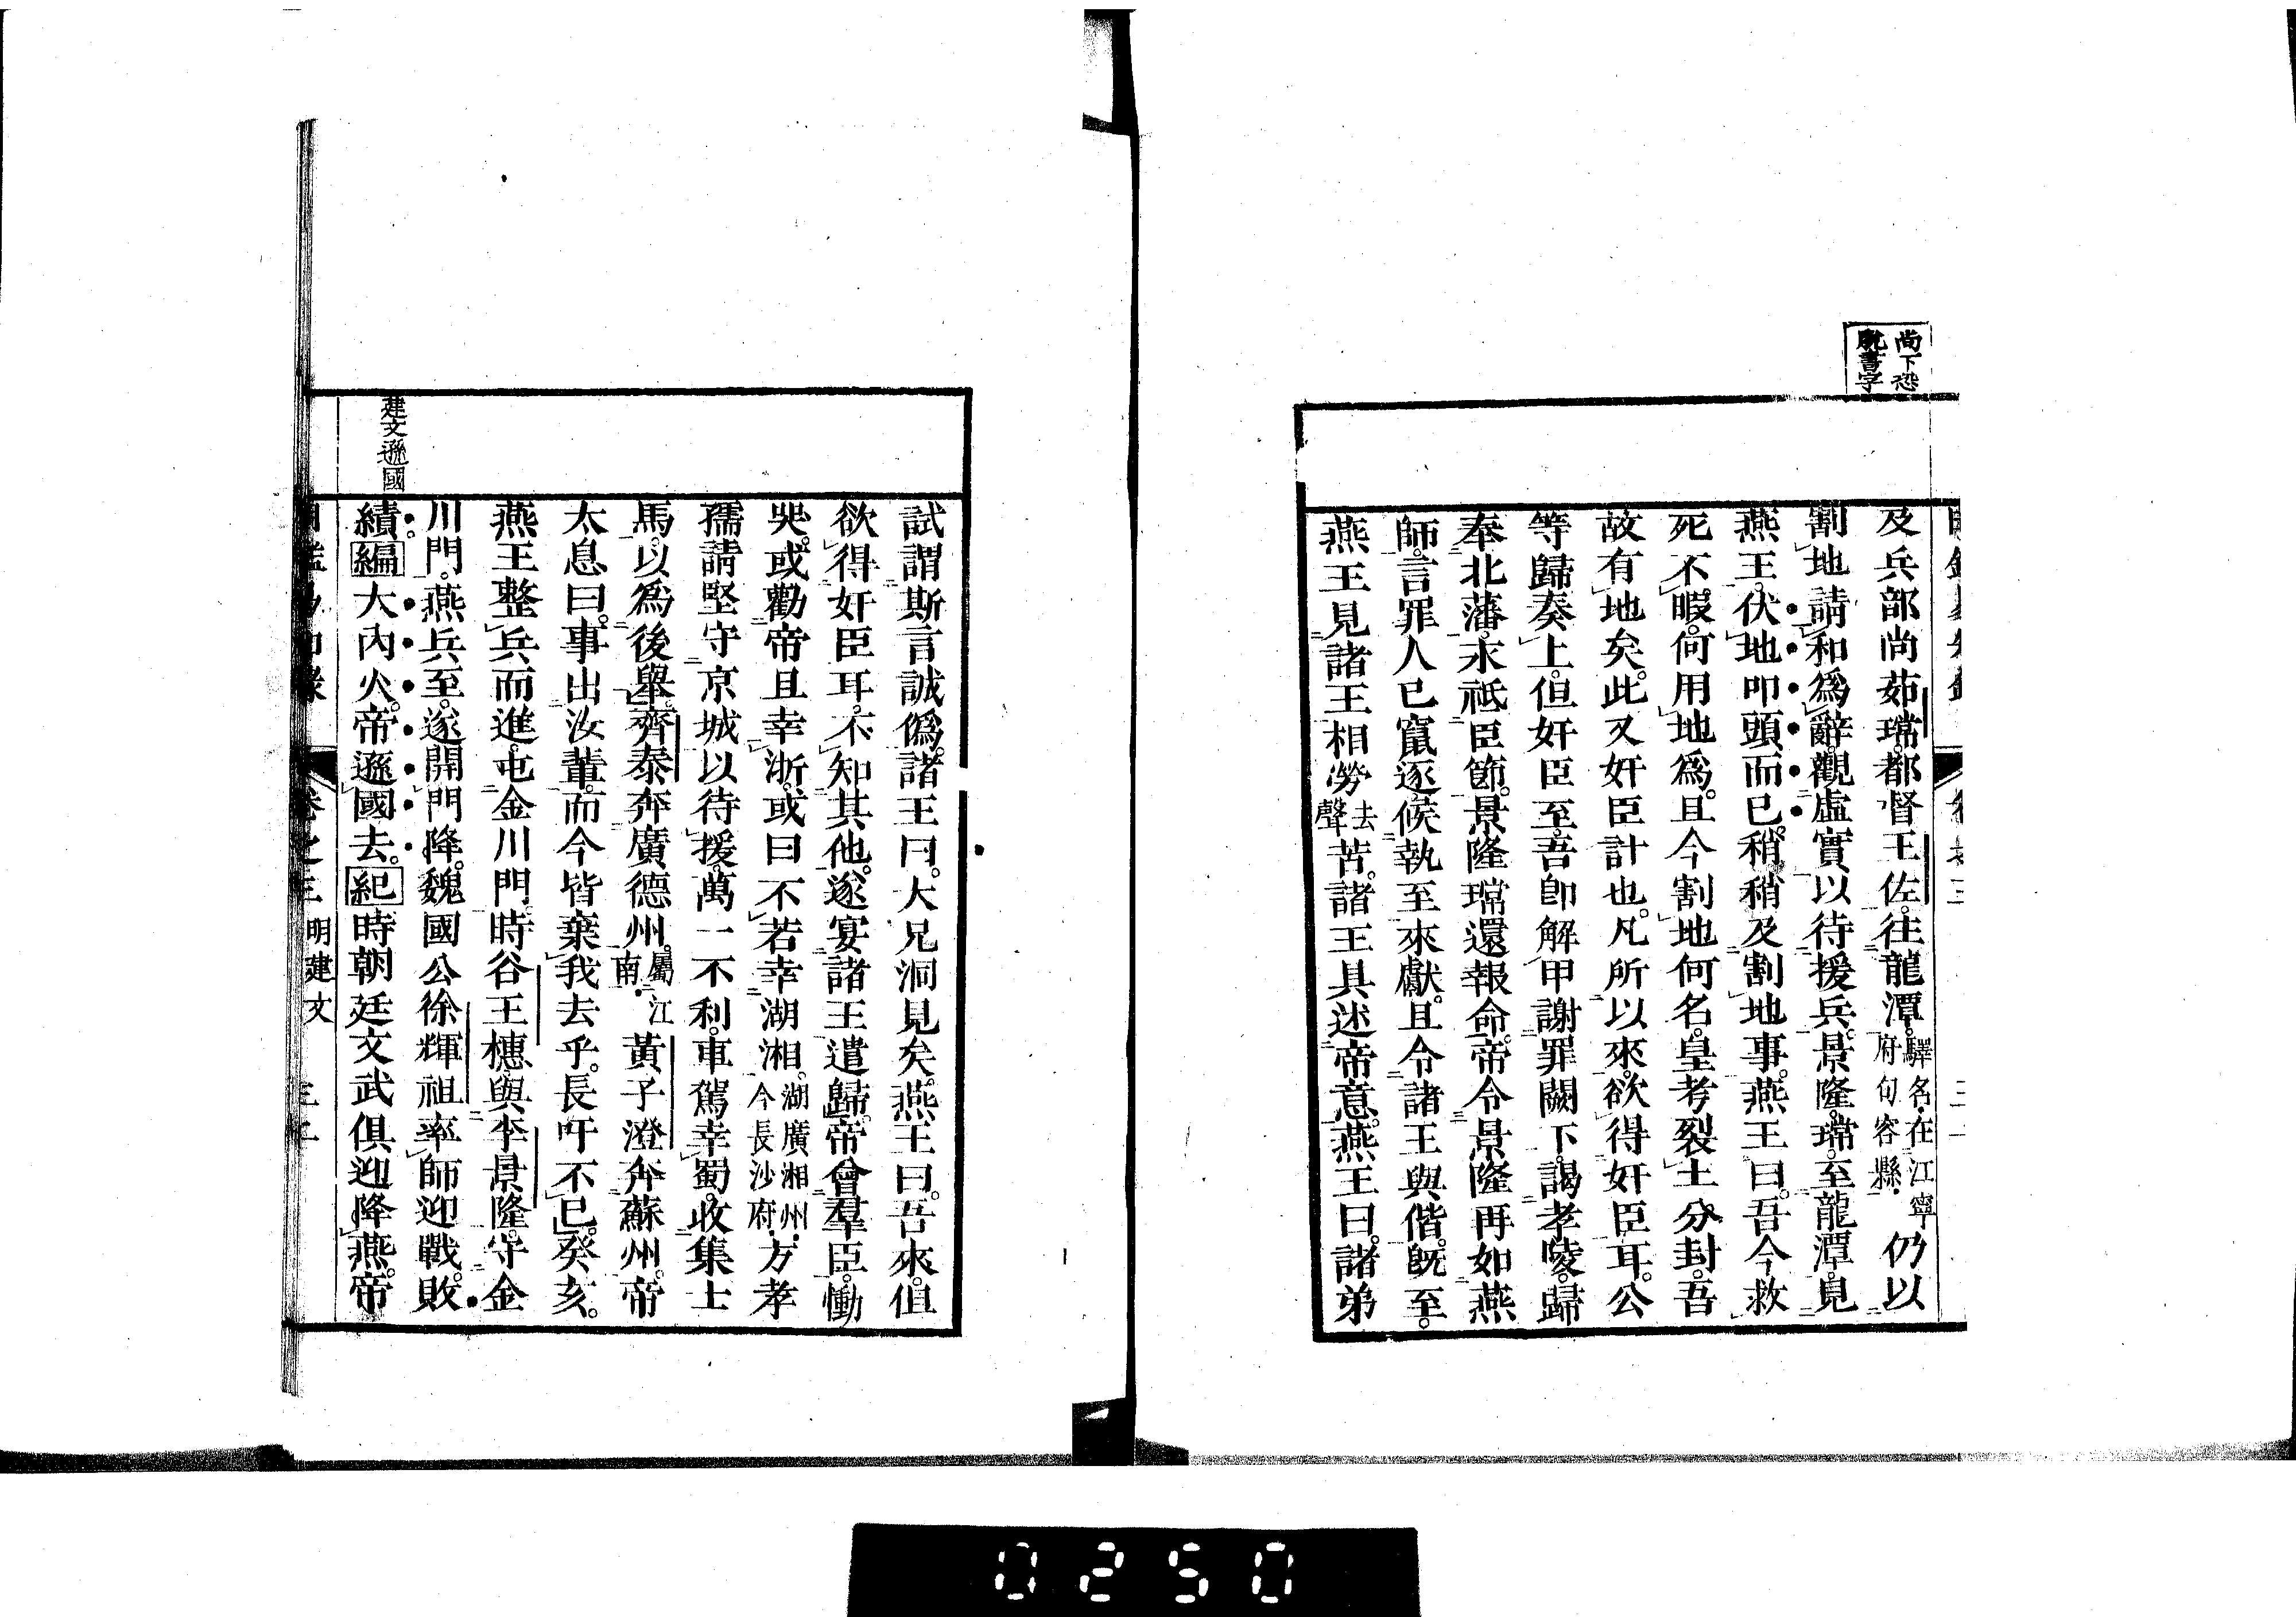 尚下恐
脱書字
及兵部尚茹瑺。都督王佐。往龍潭。驛名。在江寧府句容縣。仍以
割地請和爲辭。觀虛實以待援兵。景隆。瑺。至龍潭。見
燕王。伏地叩頭而已。稍稍及割地事。燕王曰。吾今救
死不暇。何用地爲。且今割地何名。皇考裂土分封。吾
故有地矣。此又奸臣計也。凡所以來。欲得奸臣耳。公
等歸奏上。但奸臣至。吾卽解甲謝罪闕下。謁孝陵。歸
奉北藩。永祗臣節。景隆瑺還報命。帝令景隆再如燕
師。言罪人已竄逐。候執至來獻。且令諸王與偕。旣至。
燕王見諸王相勞去聲苦。諸王具述帝意。燕王曰。諸弟
試謂斯言誠僞。諸王曰。大兄洞見矣。燕王曰。吾來。但
欲得奸臣耳。不知其他。遂宴諸王遣歸。帝會羣臣。慟
哭。或勸帝且幸浙。或曰不若幸湖湘。湖廣湘州。今長沙府。方孝
孺請堅守京城以待援。萬一不利。車駕幸蜀。收集士
馬。以爲後舉。齊泰奔廣德州。屬江南。黃子澄奔蘇州。帝
太息曰。事出汝輩。而今皆棄我去乎。長吁不已。癸亥。
燕王整兵而進。屯金川門。時谷王橞。與李景隆。守金
川門。燕兵至。遂開門降。魏國公徐輝祖率師迎戰。敗
建文遜國
績。編大內火。帝遜國去。紀時朝廷文武俱迎降燕。帝
卷之三 明建文
0250